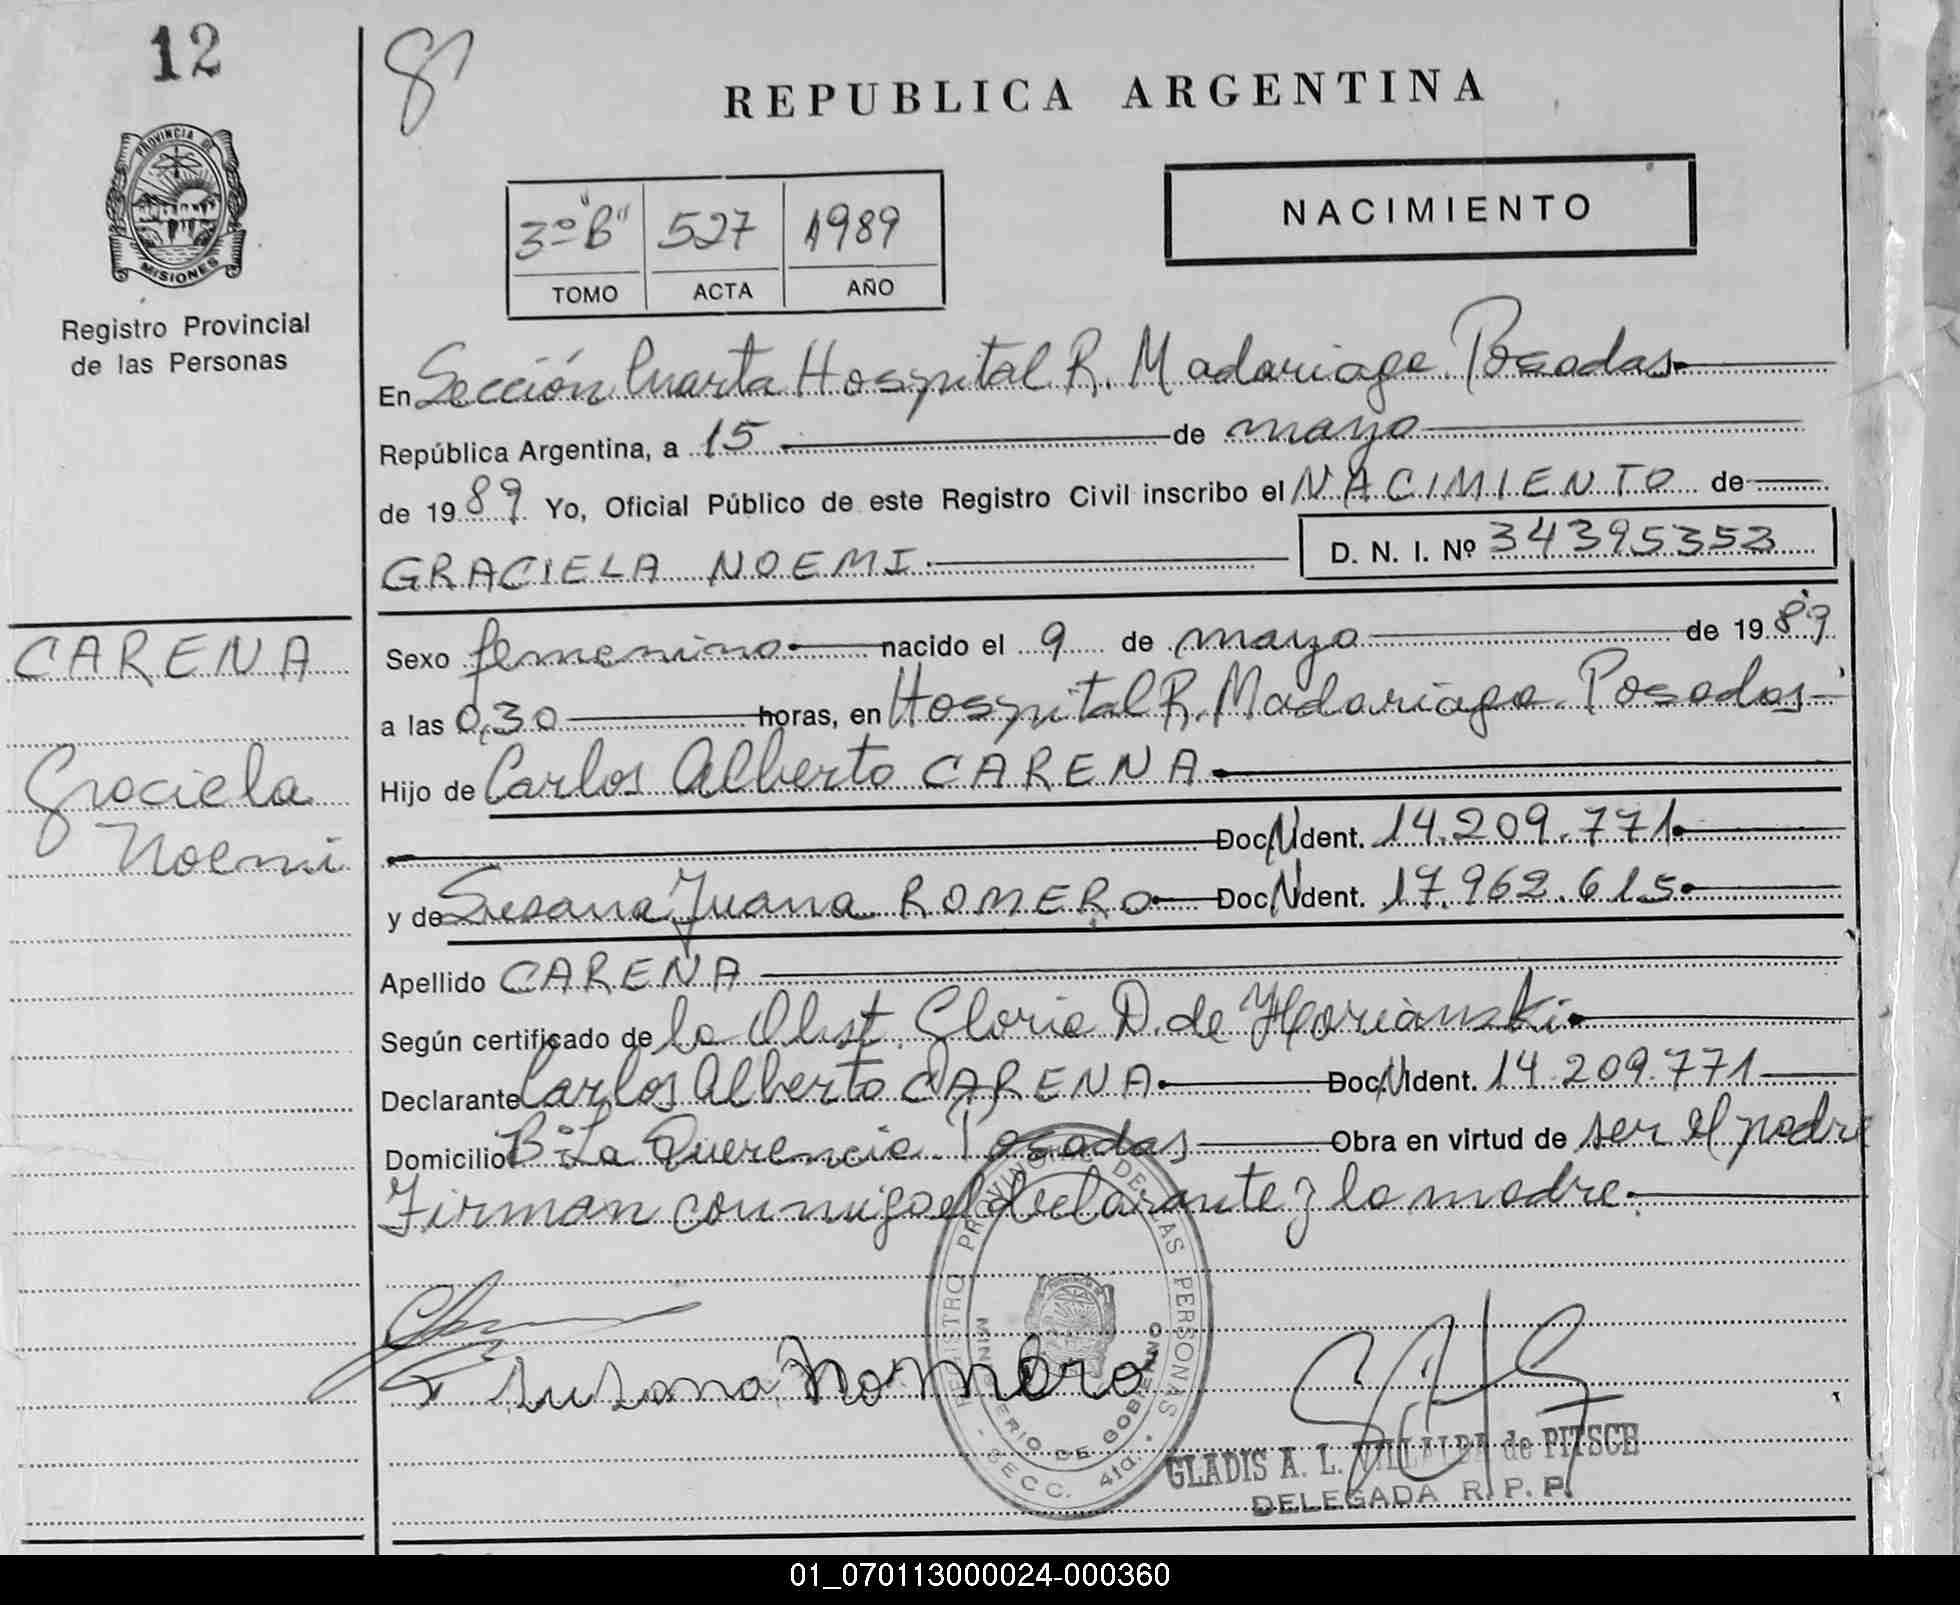 12
PROVINCIA DE
MISIONES
Registro Provincial
de las Personas
REPUBLICA ARGENTINA
3º "B" 527 1989
TOMO ACTA AÑO
NACIMIENTO
En Sección Cuarta Hospital R. Madariaga. Posadas
República Argentina, a 15 de mayo
de 1989 Yo, Oficial Público de este Registro Civil inscribo el NACIMIENTO de
GRACIELA NOEMI D. N. I. Nº 34395353
CARENA
Graciela
Noemi
Sexo femenino nacido el 9 de mayo de 1989
a las 0,30 horas, en Hospital R. Madariaga. Posadas
Hijo de Carlos Alberto CARENA
Doc. N. Ident. 14.209.771
y de Susana Juana ROMERO Doc. N. Ident. 17.962.615
Apellido CARENA
Según certificado de la Obst. Gloria D. de
Declarante Carlos Alberto CARENA Doc. N. Ident. 14.209.771
Domicilio Bº La Querencia. Posadas Obra en virtud de ser el padre
Firman conmigo el declarante y la madre.
Susana Rommero
REGISTRO PROVINCIAL DE LAS PERSONAS
MINISTERIO DE GOBIERNO
- SECC. 4ta. -
GLADIS A. L. VILLALBA de PITSCH
DELEGADA R. P. P.
01_070113000024-000360